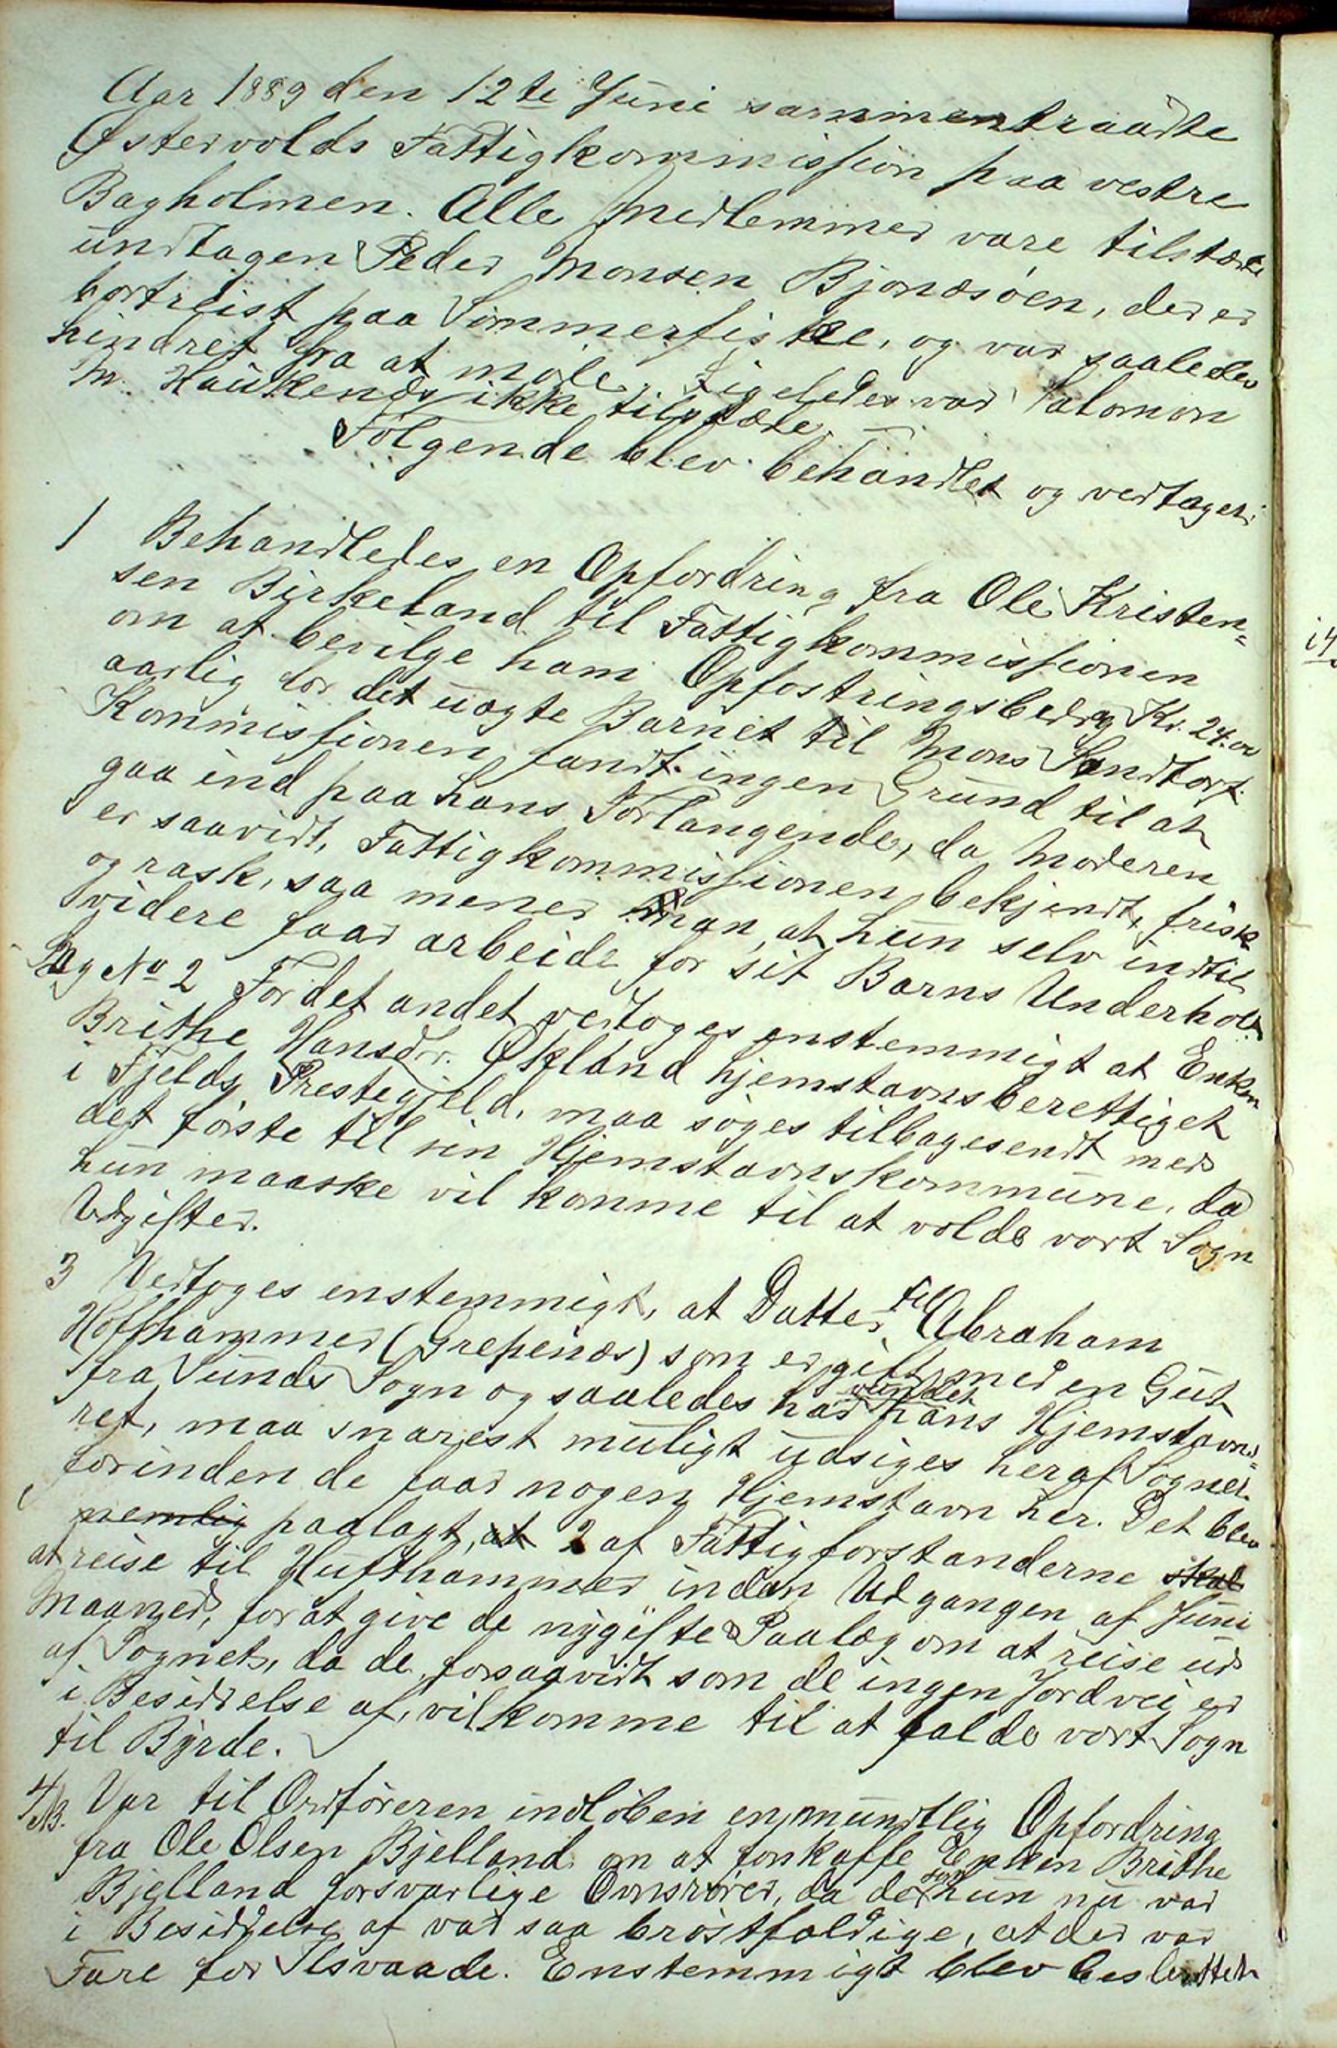 Aar 1889 den 12te Juni sammentraadte
Østervolds Fattigkommission paa vestre
Bagholmen. Alle Medlemmer vare tilstæde
undtagen Peder Monsen Bjonæsøen, der er
bortreist paa Sommerfiske, og var saaledes
hindret fra at møde. Ligeledes var Salomon
M. Haukenæs ikke tilstæde.
Følgende blev behandlet og vedtaget:
1 Behandledes en Opfordring fra Ole Kristen=
sen Birkeland til Fattigkommissionen
om at bevilge ham Opfostringsbedrag Kr. 24.00
aarlig for det uægte Barnet til Mons Sandtorf.
Kommissionen fandt ingen Grund til at
gaa ind paa hans Forlangende, da Moderen
er saavidt, Fattigkommissionen bekjendt, frisk
og rask, saa mener man, at hun selv indtil
videre faar arbeide for sit Barns Underhold.
Sag No 2 For det andet vedtoges enstemmigt at Enken
Brithe Hansdr. Økland hjemstavnsberettiget
i Fjelds Prestegjeld, maa søges tilbagesendt med
det første til sin Hjemstavnskommune, da
hun maaske vil komme til at volde vort Sogn
Udgifter.
3 Vedtoges enstemmigt, at Datter til Abraham
Hoffhammer (Grepenæs) som er gift med en Gut
fra Sunds Sogn og saaledes har vundet hans Hjemstavns=
ret, maa snarest muligt udsiges heraf Sognet
forinden de faar nogen Hjemstavn her. Det blev
nemlig paalagt, at 2 af Fattigforstanderne skal
at reise til Hufthammer inden Udgangen af Juni
Maaned, for at give de nygifte Paalæg om at reise ud
af Sognet, da de, forsaavidt som de ingen Jordvei er
i Besiddelse af, vil komme til at falde vort Sogn
til Byrde.
4 NB. Var til Ordføreren indløben en mundtlig Opfordring
fra Ole Olsen Bjelland om at forskaffe Enken Brithe
Bjelland forsvarlige Ovnsrører, da de som hun nu var
i Besiddelse af var saa brøstfældige, at der var
Fare for Ildsvaade. Enstemmigt blev besluttet